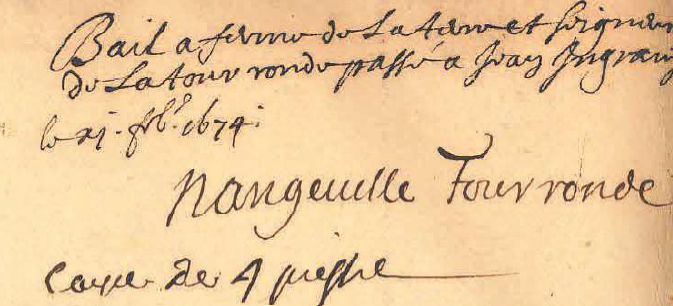 Bail a ferme de La terre et seigneur
de La tour ronde passé a Jean Ingrand
le 21. feb.r 1674.
Nangeville Tour ronde
Coxe de 4 piesse